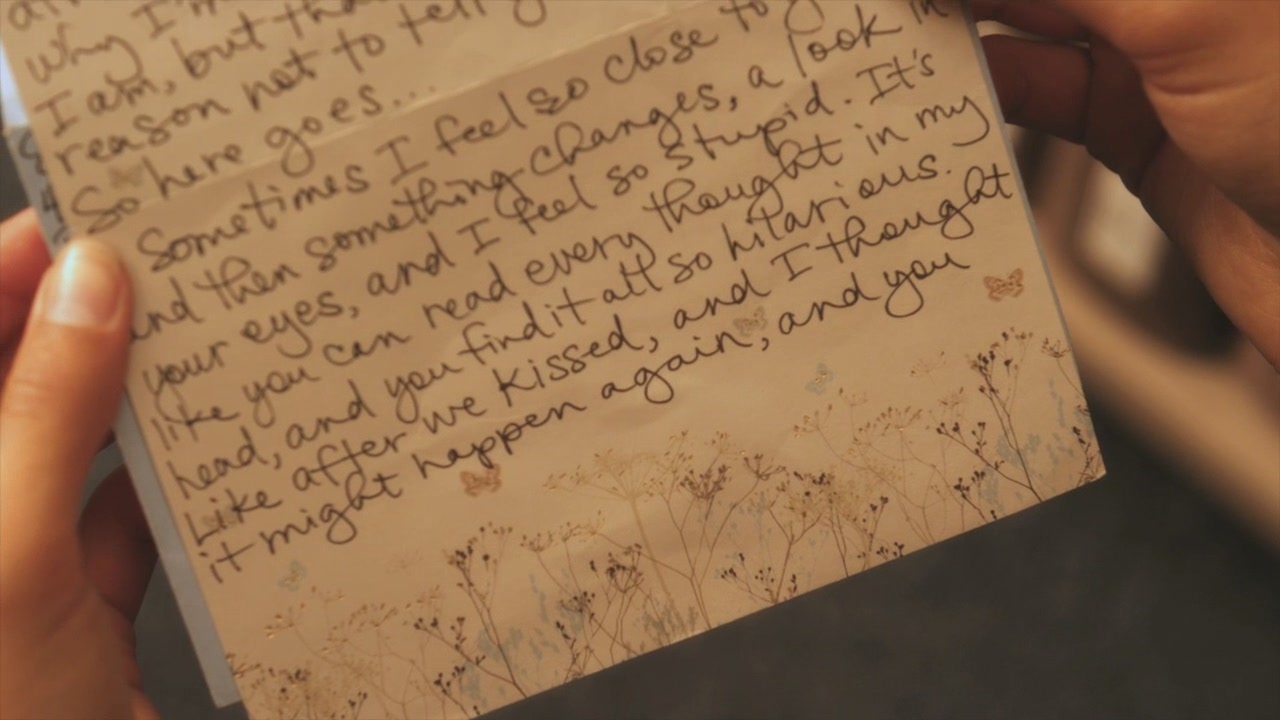 why I'm
I am, but tha
reason not to tell y
So here goes...
Sometimes I feel so close to y
and then something changes, a look in
your eyes, and I feel so stupid. It's
like you can read every thought in my
head, and you find it all so hilarious.
Like after we kissed, and I thought
it might happen again, and you